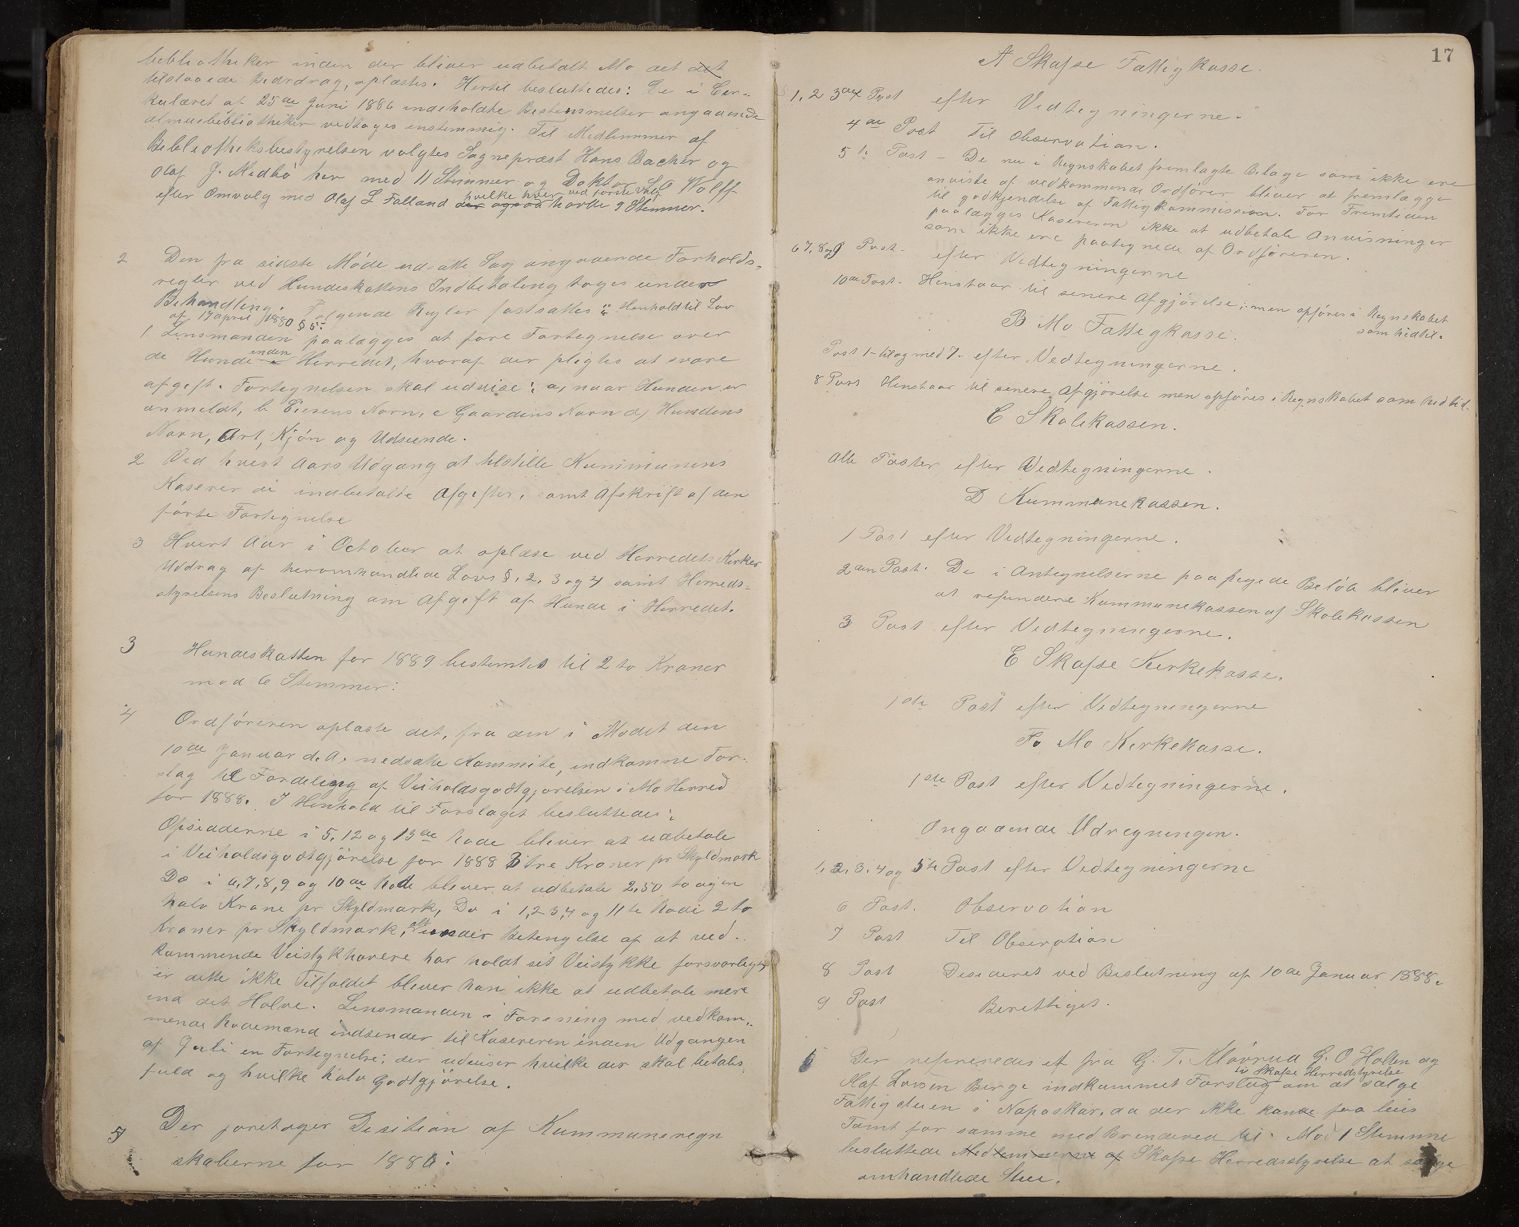 bibliotheker inden der bliver udbetalt Mo det det
tilstaaede Bidrdrag, oplæstes. Hertil besluttedes: De i Cer-
kulæret af 25de Juni 1886 indeholdte Bestemmelser angaaende
almuebibliotheker vedtoges enstemmig. Til Medlemmer af
Bibliotheksbestyrelsen valgtes Sognepræst Hans Bacher og
Olaf J. Medbö her med 11 Stemmer og Doktor Wolff
efter Omvalg med Olaf L Falland der også hvilke hver ved første Valg havde 9 Stemmer.
2 Den fra sidste Møde udsatte Sag angaaende Forholds-
regler ved Hundeskattens Indbetaling toges under
Behandling. Følgende Regler fastsattes i Henhold til Lov
af 17 april 1880 § 5:
1 Lensmanden paalægges at føre Fortegnelse over
de Hunde inden Herredet, hvoraf der pligtes at svare
afgift. Fortegnelsen skal udvise: a, naar Hunden er
anmeldt, b Eierens Navn, c Gaardens Navn d, Hundens
Navn, Art, Kjøn og Udseende.
2 Ved hvert Aars Udgang at tilstille Kummunens
Kaserer de indbetalte Afgifter, samt Afskrift af den
førte Fortegnelse
3 Hvert Aar i October at oplæse ved Herredets Kirker
Uddrag af heromhandlede Lovs §. 1, 2, 3 og 4 samt Herreds-
styrelsens Beslutning om Afgift af Hunde i Herredet.
3 Hundeskatten for 1889 bestemtes til 2 to Kroner
mod 6 Stemmer.
4 Ordføreren oplæste det, fra den i Mødet den
10de Januar d. A. nedsatte Kommite, indkomne For-
slag til Fordeling af Veiholdsgodtgjørelsen i Mo Herred
for 1888. I Henhold til Forslaget besluttedes:
Opsidderne i 5, 12 og 13de Rode bliver at udbetale
i Veiholdsgodtgjørelse for 1888 3 tre Kroner pr Skyldmark
Do i 6, 7, 8, 9 og 10de Rode bliver at udbetale 2,50 to og en
halv Krone pr Skyldmark, Do i 1, 2 3, 4 og 11te Rode 2 to
Kroner pr Skyldmark, alt under Betingelse af at ved-
kommende Veistykhavere har holdt sit Veistykke forsvarligt,
er dette ikke Tilfældet bliver han ikke at udbetale mere
end det Halve. Lensmanden i Forening med vedkom-
mende Rodemand indsender til Kasereren inden Udgangen
af Juli en Fortegnelse, der udviser hvilke der skal betales
fuld og hvilke halv Godtgjørelse.
5 Der foretoges Desition af Kummunsregn
skaberne for 1886:
17
A Skafse Fattigkasse.
1, 2 3die Post efter Vedtegningerne.
4de Post Til Observation.
5te Post - De nu i Regnskabet fremlagte Bilage som ikke ere
anviste af vedkommende Ordfører bliver at fremlægge
til godkjendelse af Fattigkommissionen. For Fremtiden
paalægges Kasereren ikke at udbetale Anvisninger
som ikke ere paategnede af Ordføreren.
6 7, 8 og 9 Post - efter Vedtegningerne
10de Post. Henstaar til senere Afgjörelse; men opføres i Regnskabet
som hidtil.
B Mo Fattigkasse.
Post 1 - til og med 7 - efter Vedtegningerne.
8 Post Henstaar til senere Afgjörelse men opføres i Regnskabet som hidtil.
C Skolekassen.
Alle Poster efter Vedtegningerne.
D Kummunekassen.
1 Post efter Vedtegningerne.
2den Post. De i Antegnelserne paapegede Beløb bliver
at refundere Kummunekassen af Skolekassen
3 Post efter Vedtegningerne.
E Skafse Kirkekasse.
1ste Post efter Vedtegningerne
F. Mo Kirkekasse.
1ste Post efter Vedtegningerne.
Ongaaende Udregningen.
1, 2, 3, 4 og 5te Post efter Vedtegningerne
6 Post. Observation
7 Post Til Observation
8 Post Desideret ved Beslutning af 10de Januar 1888.
9 Post Berettiget.
6 Der refereredes et fra G. T. Kløvrud G. O Holten og
Olaf Larsen Berge indkommet Forslag til Skafse Herredstyrelse om at sælge
Fattigstuen i Napaskar, da der ikke kunde faa leies
Tomt for samme med Brændeved til. Mod 1 Stemme
besluttede Medlemmerne af Skafse Herredsstyrelse at sælge
omhandlede Stue.